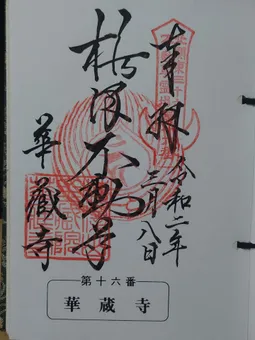 奉拝
令和二年
三月八日
梅沢不動尊
華蔵寺
第十六番
華蔵寺